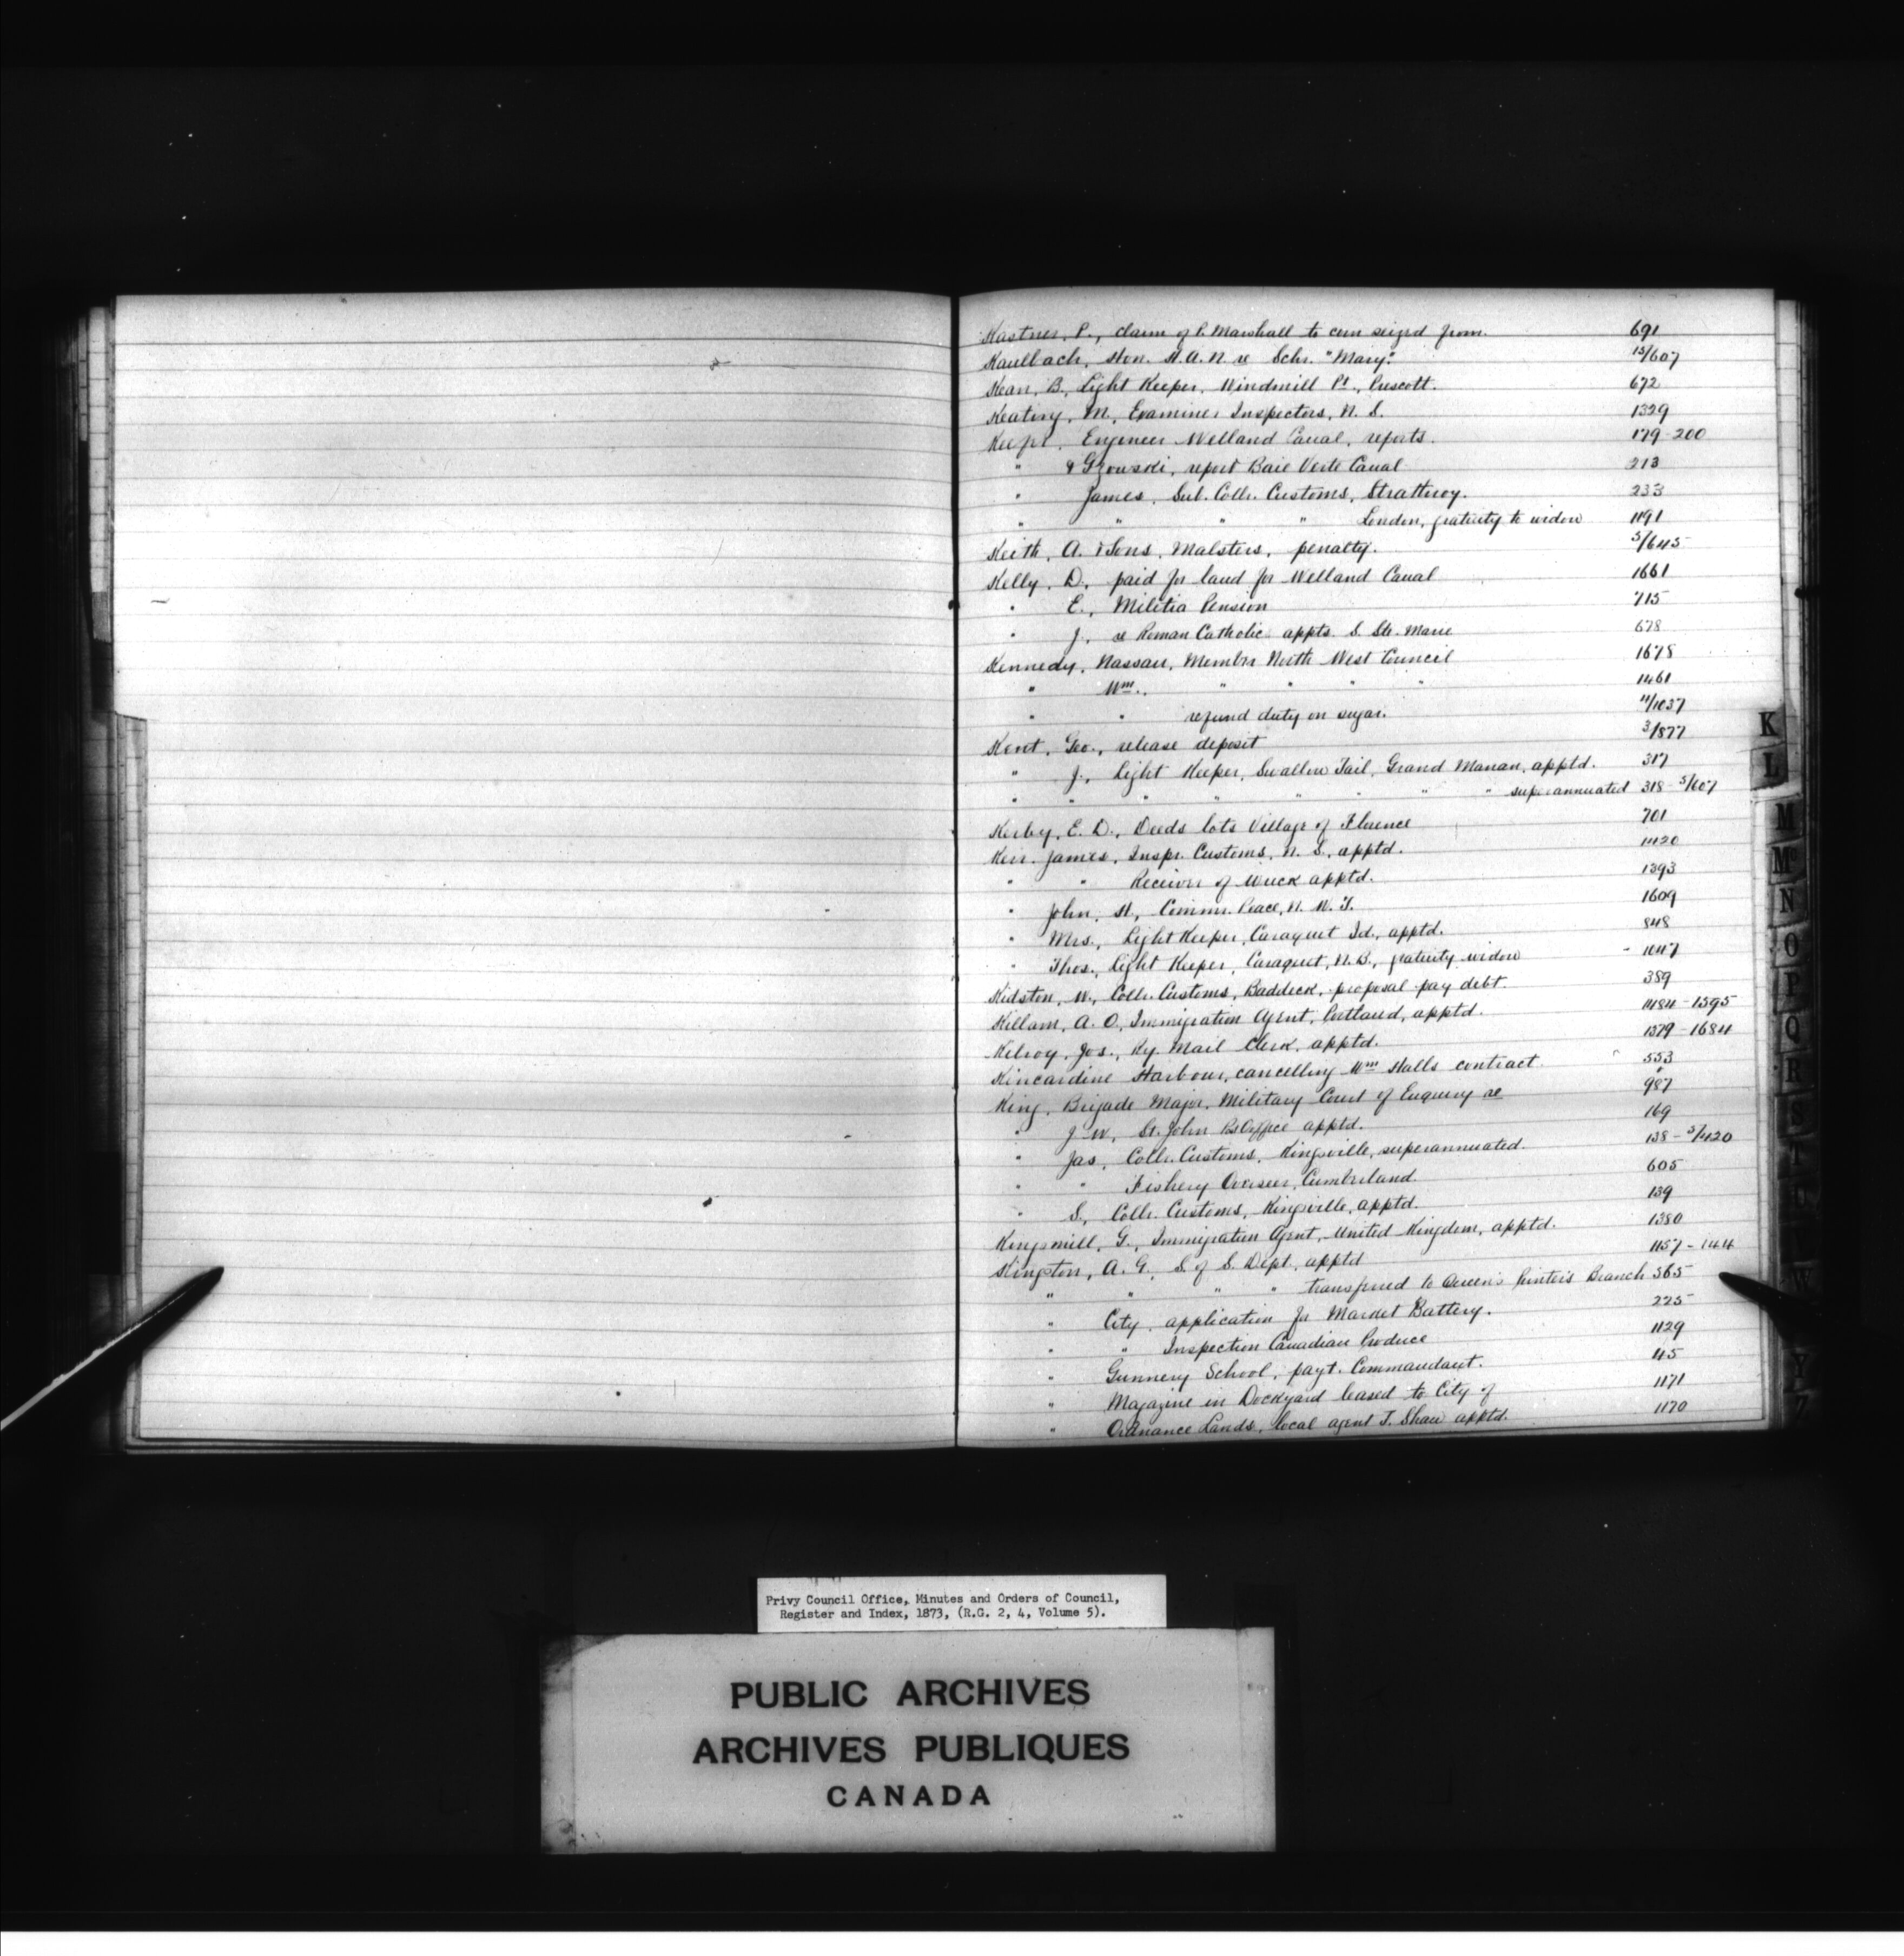 Kastner, P., claim of P. Marshall to corn seized from. 691
Kaulbach, Hon. H.A.N. re Schr. "Mary". 15/607
Kean, B., Light Keeper, Windmill Pt., Prescott. 672
Keating, M., Examiner Inspectors, N.S. 1329
Keefer, Engineer Welland Canal, reports. 179-200
" & Gzowski, report Baie Verte Canal 213
" James, Sub. Collr. Customs, Strathroy. 233
" " " " London, gratuity to widow 1191
Keith, A. & Sons, Malsters, penalty. 5/645
Kelly, D., paid for land for Welland Canal 1661
" E., Militia Pension 715
" J., re Roman Catholic appts. S. Ste. Marie 678
Kennedy, Nassau, Membr North West Council 1678
" Wm., " " " " 1461
" " refund duty on sugar. 11/1037
Kent, Geo., release deposit 3/877
" J., Light Keeper, Swallow Tail, Grand Manan, apptd. 317
" " " " " " " " superannuated 318-5/607
Kerby, E. D., Deeds lots Village of Florence 701
Kerr, James, Inspr. Customs, N.S., apptd. 1420
" " Receiver of Wreck apptd. 1393
" John, H., Commr. Peace, N.W.T. 1609
" Mrs., Light Keeper, Caraquet Id., apptd. 848
" Thos., Light Keeper, Caraquet, N.B., gratuity widow - 1047
Kidston, W., Collr. Customs, Baddeck, proposal pay debt. 389
Killam, A. O., Immigration Agent, Portland, apptd. 1484-1395
Kilroy, Jos., Ry. Mail Clerk, apptd. 1379-1684
Kincardine Harbour, cancelling Wm Halls contract. 553
King, Brigade Major, Military Court of Enquiry re 987
" J. W., St. John P.Office apptd. 169
" Jas, Collr. Customs, Kingsville, superannuated. 138-5/420
" " Fishery Overseer, Cumberland. 605
" S., Collr. Customs, Kingsville, apptd. 139
Kingsmill, G., Immigration Agent, United Kingdom, apptd. 1380
Kingston, A. G., S. of S. Dept., apptd 1157-144
" " " " transferred to Queen's Printer's Branch 365
" City, application for Market Battery. 225
" " Inspection Canadian Produce 1129
" Gunnery School, payt. Commandant. 45
" Magazine in Dockyard leased to City of 1171
" Ordnance Lands, local agent T. Shaw apptd. 1170
K
L
M
Mc
N
O
P
Q
R
S
T
U
W
Y
Z
Privy Council Office, Minutes and Orders of Council,
Register and Index, 1873, (R.G. 2, 4, Volume 5).
PUBLIC ARCHIVES
ARCHIVES PUBLIQUES
CANADA